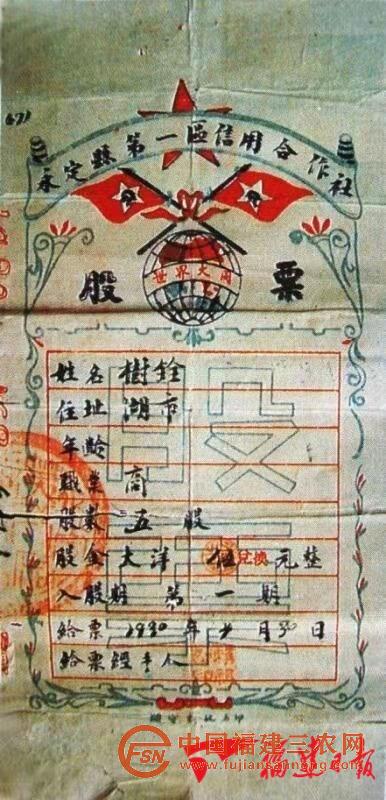 永定縣第一區信用合作社
世界大同
股票
姓名樹銓
住址湖市
年齡
職業商
股數五股
股金大洋伍元整
兌換
入股期第一期
給票1930年 月30日
給票經手人
FSN
中国福建三农网
www.fujiansannong.com
福建日报